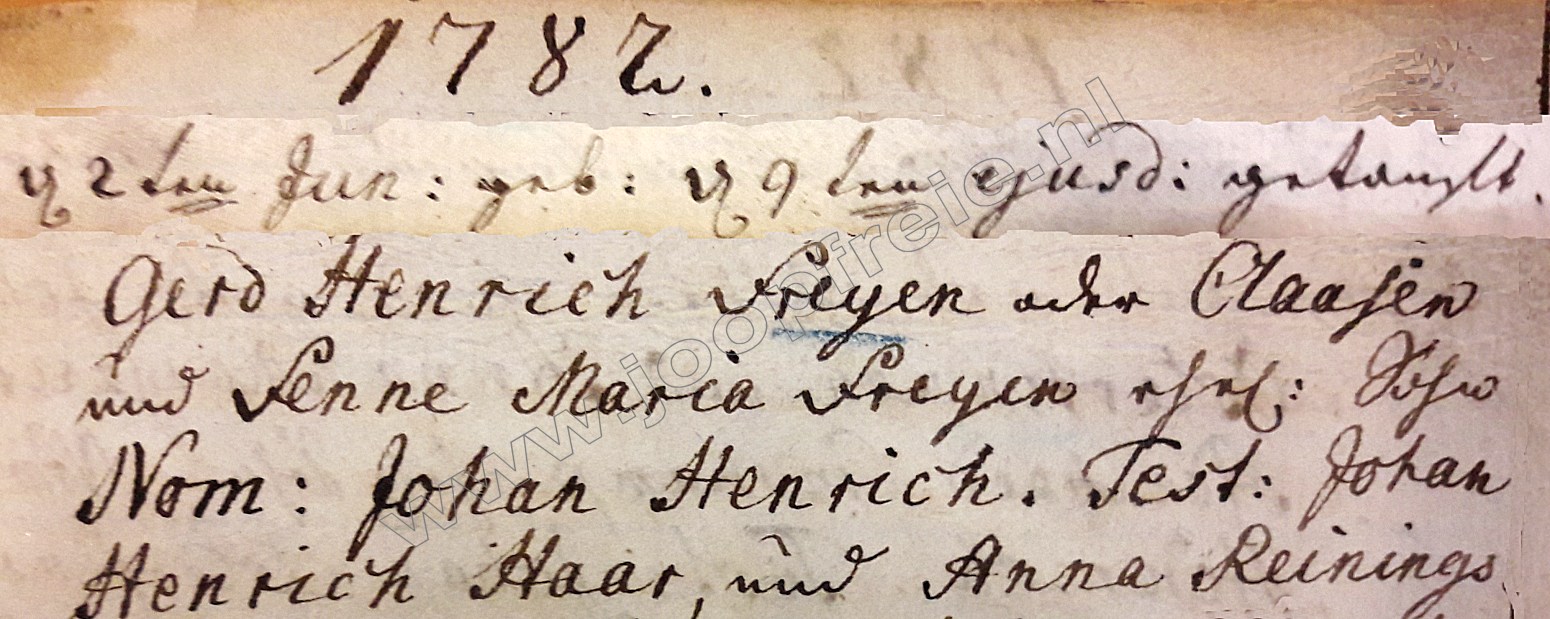 1782.
d 2ten Jun: geb: d 9ten ejusd: getauft.
Gerd Henrich Freyen oder Claasen
und Fenne Maria Freyen ehel: Sohn
Nom: Johan Henrich. Test: Johan
Henrich Haar, und Anna Reinings
www.joopfreie.nl